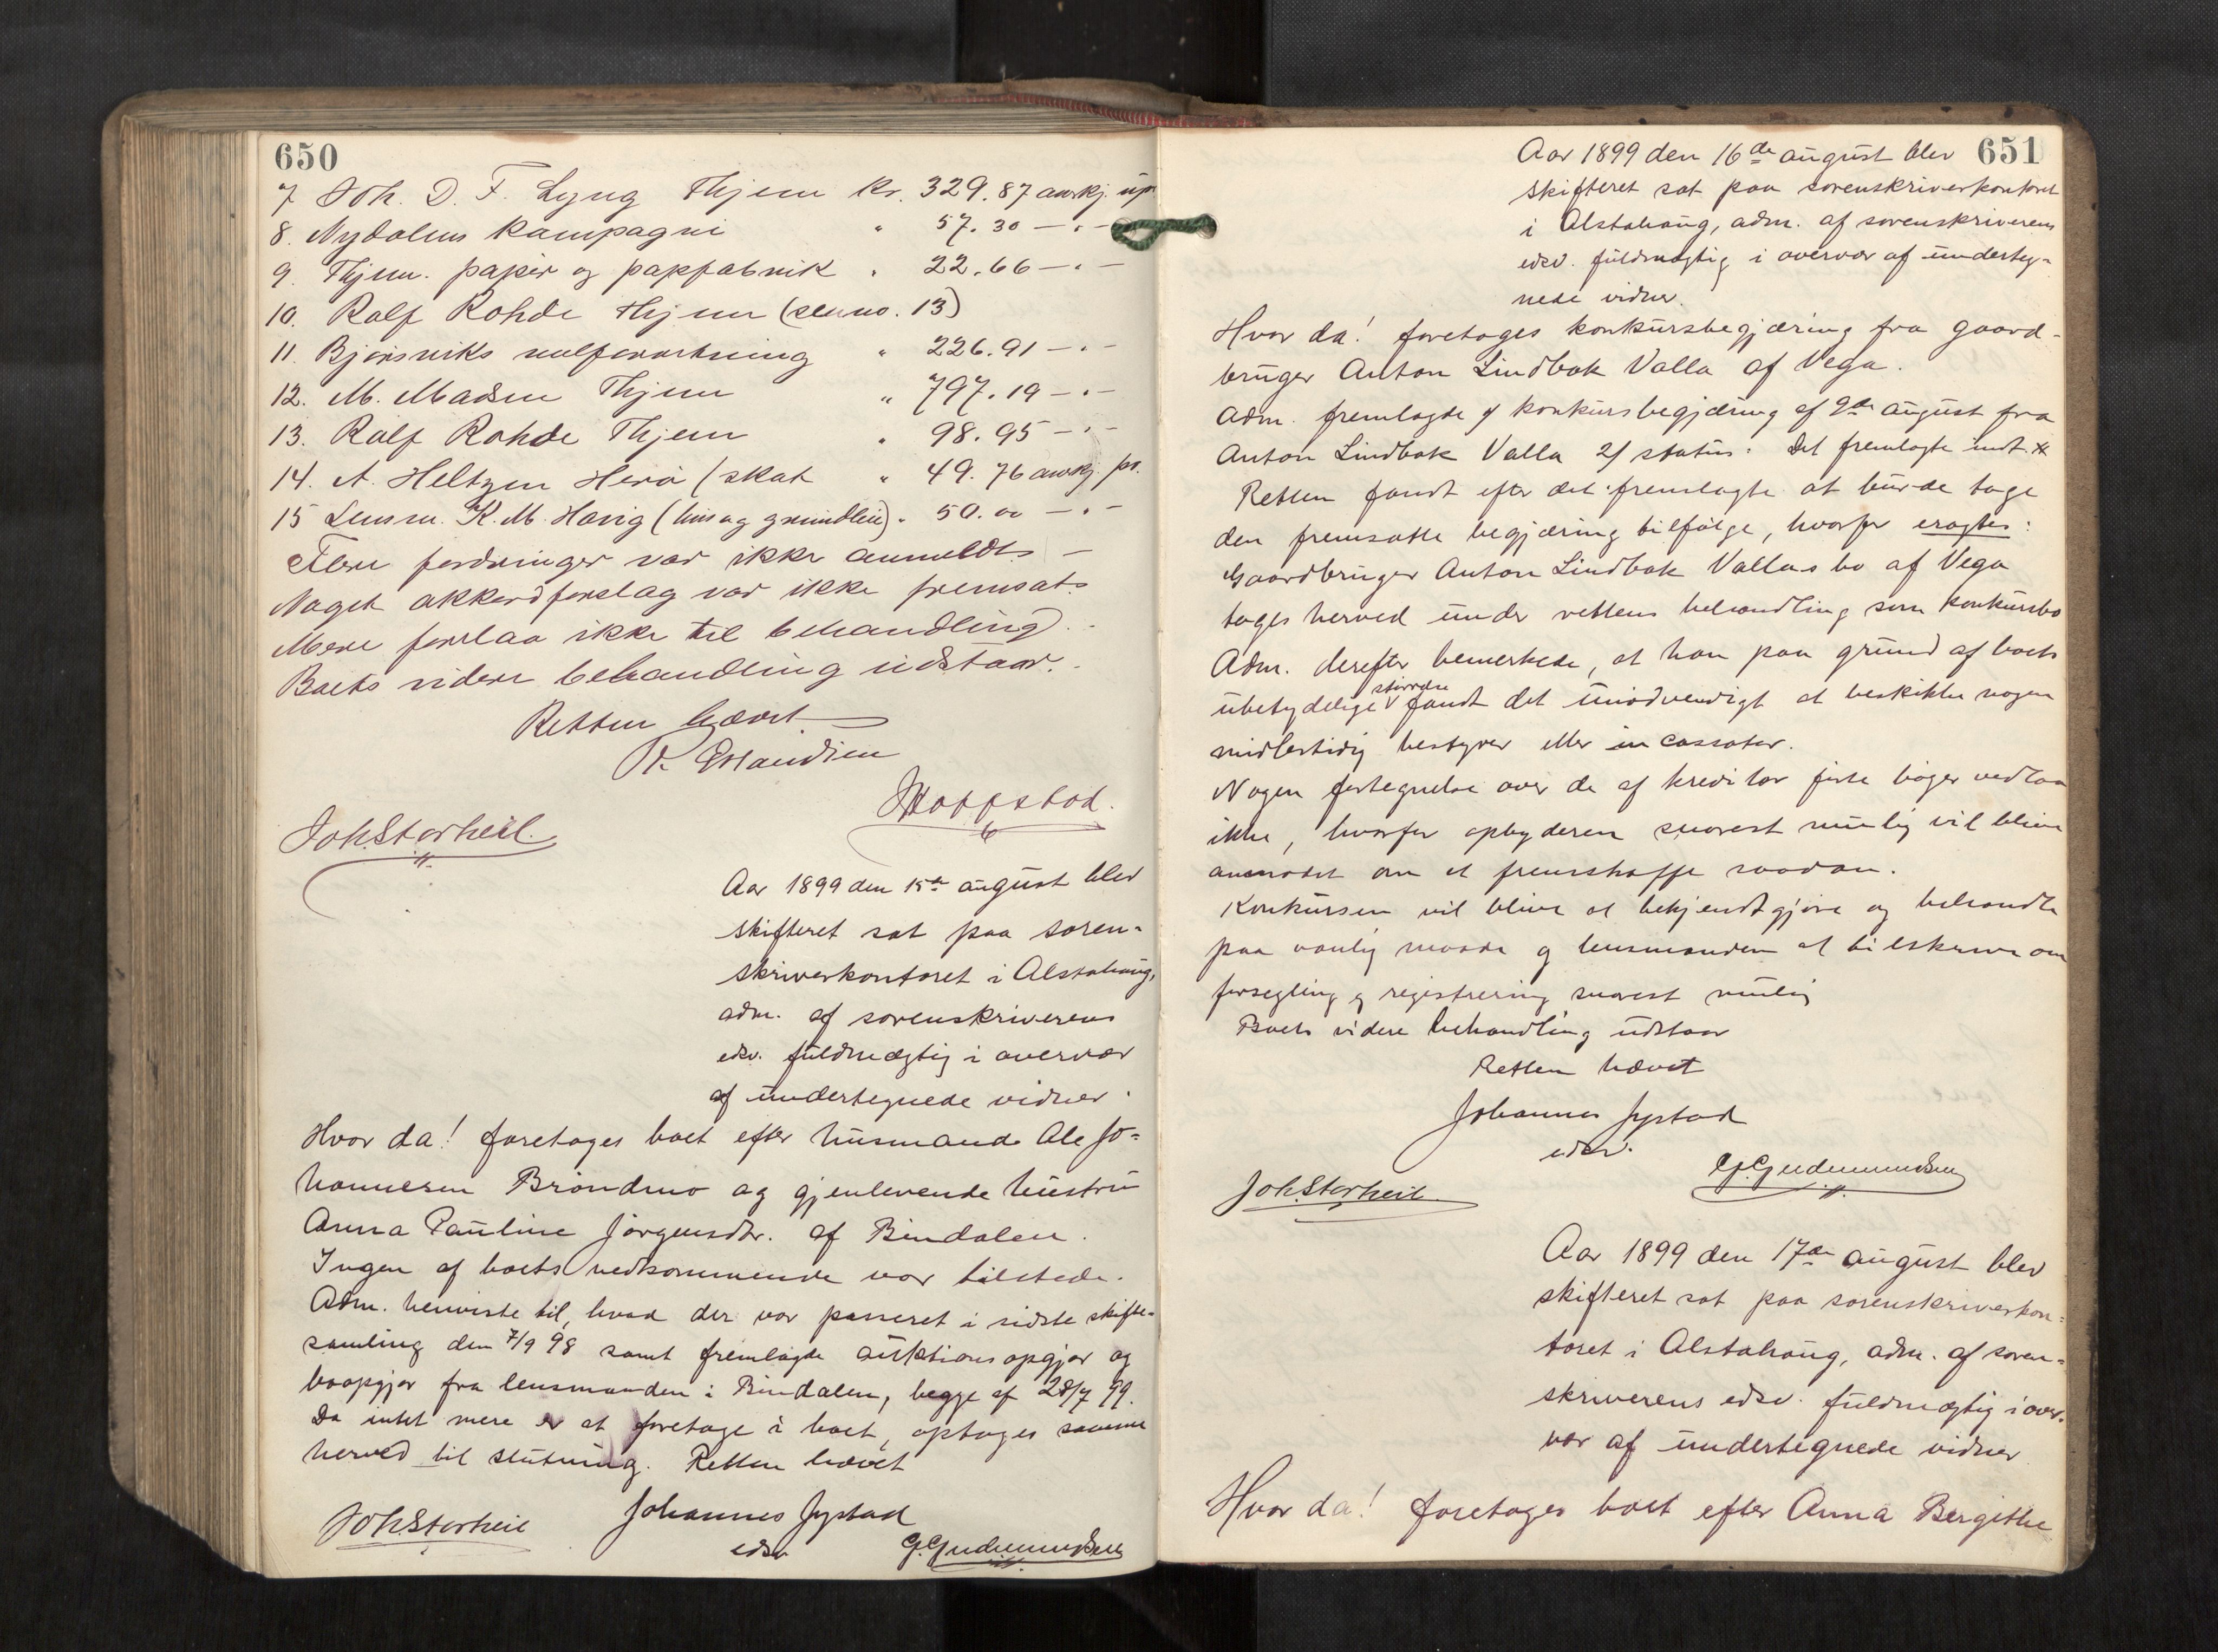 650
7 Joh. D. F. Lyng Thjem kr. 329.87 anrkj. up.
8. Nydalens kampagni " 57.30 — " —
9. Thjem. papir og papfabrik " 22.66 — " —
10. Rolf Rohde Thjem (se no. 13)
11. Bjørsviks " 226.91 — " —
12. M. Madsen Thjem " 797.19 — " —
13. Rolf Rohde Thjem " 98.95 — " —
14. A. Heltzen Herø (skat " 49.76 anrkj. pr.
15 Lensm. K. M. Havig (hus og grundleie) " 50.00 — " —
Flere fordringer var ikke anmeldt. —
Noget akkordforslag var ikke fremsat.
Mere forelaa ikke til behandling.
Boets videre behandling udstaar.
Retten hævet
Joh. Storheil.
Aar 1899 den 15de august blev
skifteret sat paa soren-
skriverkontoret i Alstahaug,
adm. af sorenskriverens
edsv. fuldmægtig i overvær
af undertegnede vidner.
Hvor da! foretoges boet efter husmand Ole Jo-
hannesen Brøndmo og gjenlevende hustru
Anna Pauline Jørgensdtr. af Bindalen.
Ingen af boets vedkommende var tilstede.
Adm. henviste til, hvad der var passeret i sidste skifte-
samling den 7/9 98 samt fremlagde auktionsopgjør og
boopgjør fra lensmanden i Bindalen, begge af 28/7 99.
Da intet mere er at foretage i boet, optoges samme
herved til slutning. Retten hævet
Joh Storheil Johannes Jystad
edsv G. Gudmundsen
651
Aar 1899 den 16de august blev
skifteret sat paa sorenskriverkontoret
i Alstahaug, adm. af sorenskriverens
edsv. fuldmægtig i overvær af underteg-
nede vidner.
Hvor da! foretoges konkursbegjæring fra gaard-
bruger Anton Lindbak Valla af Vega.
Adm. fremlagde 1/ konkursbegjæring af 9de august fra
Anton Lindbak Valla 2/ status. Det fremlagte indt.
Retten fandt efter det fremlagte at burde tage
den fremsatte begjæring tilfølge, hvorfor eragtes:
Gaardbruger Anton Lindbak Vallas bo af Vega
tages herved under rettens behandling som konkursbo
Adm. derefter bemerkede, at han paa grund af boets
ubetydelige størrelse fandt det unødvendigt at beskikke nogen
midlertidig bestyrer eller incassator.
Nogen fortegnelse over de af kreditor førte bøger vedlaa
ikke, hvorfor opbyderen snarest mulig vil blive
anmodet om at fremskaffe saadan.
Konkursen vil blive at bekjendtgjøre og behandle
paa vanlig maade og lensmanden at tilskrive om
forsegling og registrering snarest mulig
Boets videre behandling udstaar
Retten hævet
Johannes Jystad
edsv.
Joh. Storheil G. Gudmundsen
Aar 1899 den 17de august blev
skifteret sat paa sorenskriverkon-
toret i Alstahaug, adm. af soren-
skriverens edsv. fuldmægtig i over-
vær af undertegnede vidner
Hvor da! foretoges boet efter Anna Bergithe